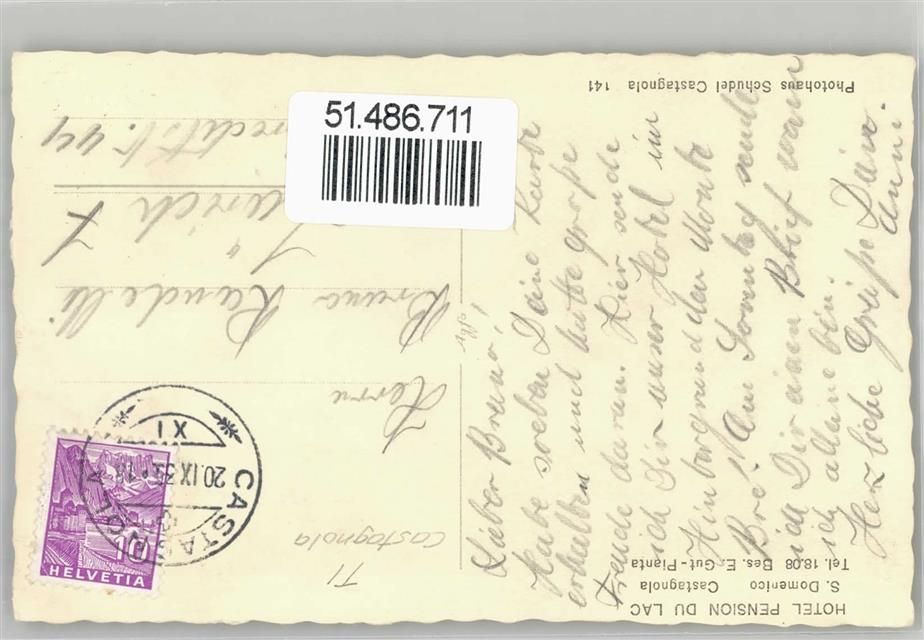 51.486.711
HOTEL PENSION DU LAC
S. Domenico Castagnola
Tel. 18.08 Bes. E. Gut-Pianta
Photohaus Schudel Castagnola 141
Lieber Bruno!
Habe soeben Deine Karte
erhalten und hatte große
Freude daran. Hier sende
ich Dir unser Hotel im
Hintergrund den Monte
Bré. Am Sonntag sende
ich Dir einen Brief wenn
ich alleine bin.
Herzliche Grüße Dein
Anni
TI
Castagnola
CASTAGNOLA
20.IX.35
XI
10
HELVETIA
Herrn
Bruno
Zürich 7
44